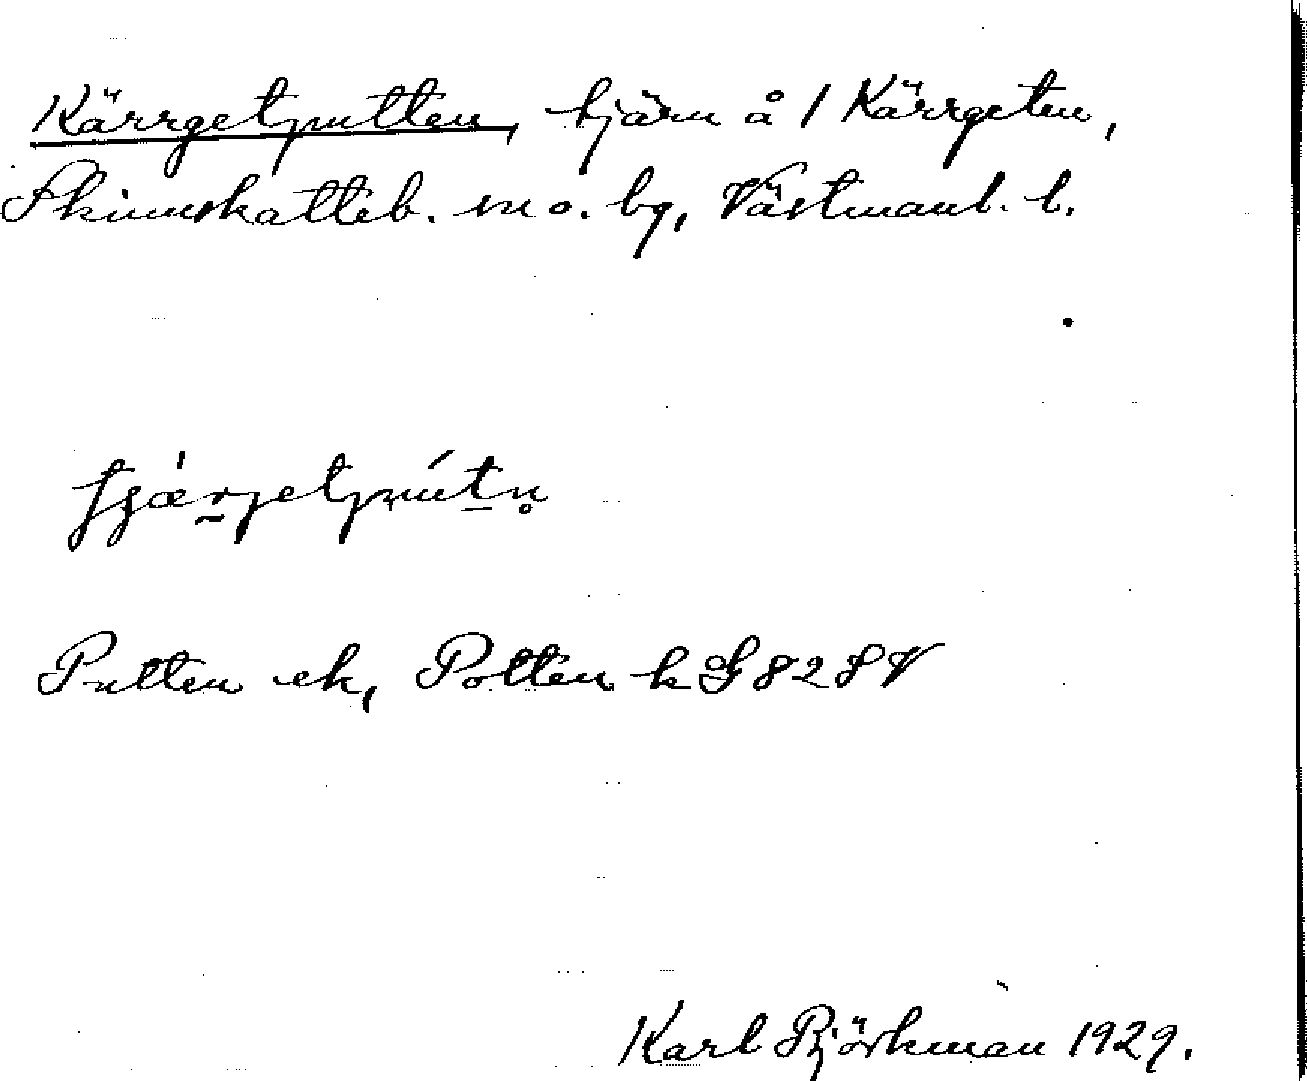 Kärrgetputten, tjärn å 1 Kärrgeten,
Skinnskatteb. sn o. bg, Västmanl. l.
Putten ek, Potten k G 82 SV
Karl Björkman 1929.